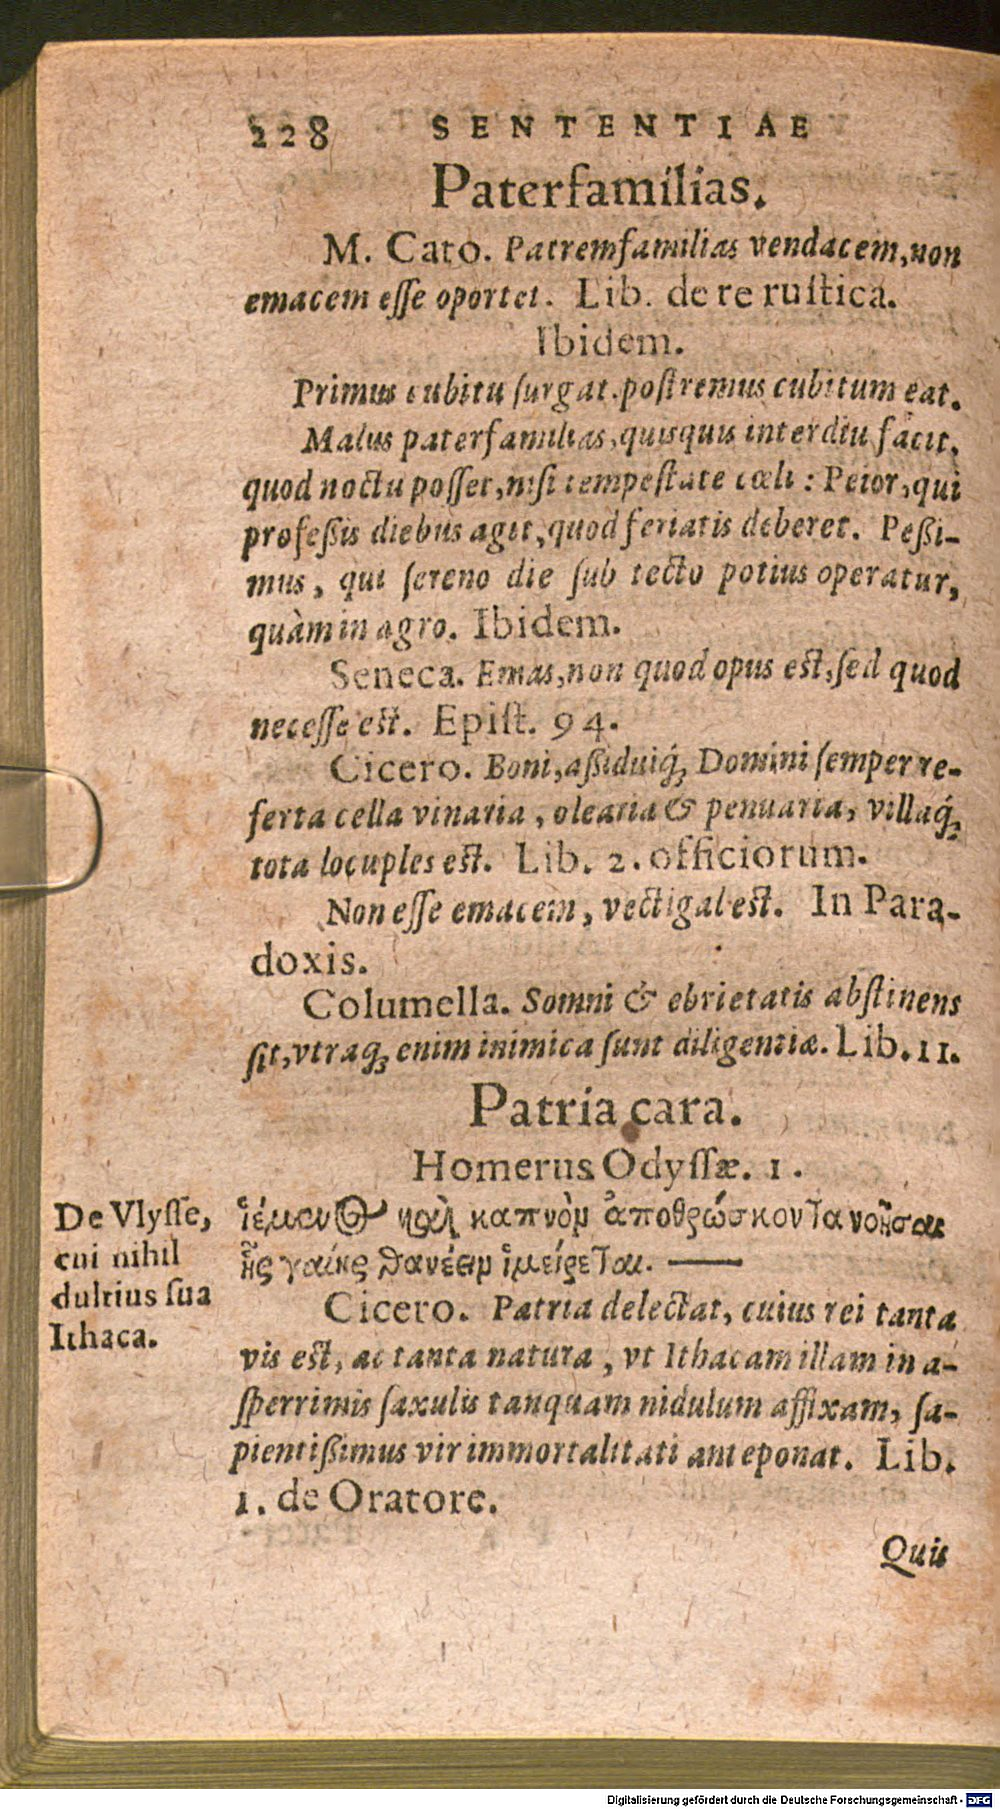 228 SENTENTIAE
Paterfamilias.
M. Cato. Patremfamilias vendacem, non
emacem esse oportet. Lib. de re rustica.
Ibidem.
Primus cubitu surgat. postremus cubitum eat.
Malus paterfamilias, quisquis interdiu facit,
quod noctu posset, nisi tempestate cœli : Peior, qui
profeßis diebus aget, quod feriatis deberet. Peßi-
mus, qui sereno die sub tecto potius operatur,
quàm in agro. Ibidem.
Seneca. Emas, non quod opus est, sed quod
necesse est. Epist. 94.
Cicero. Boni, aßiduiq́; Domini semper re-
ferta cella vinaria, olearia & penuaria, villaq́;
tota locuples est. Lib. 2. officiorum.
Non esse emacem, vectigal est. In Para-
doxis.
Columella. Somni & ebrietatis abstinens
sit, vtraq; enim inimica sunt diligentiæ. Lib. 11.
Patria cara.
Homerus Odyssæ. 1.
De Vlysse,
cui nihil
dulcius sua
Ithaca.
ἱέμενος καὶ καπνὸν ἀποθρώσκοντα νοῆσαι
ἧς γαίης θανέειν ἱμείρεται. ——
Cicero. Patria delectat, cuius rei tanta
vis est, ac tanta natura, vt Ithacam illam in a-
sperrimis saxulis tanquam nidulum affixam, sa-
pientißimus vir immortalitati anteponat. Lib.
1. de Oratore.
Quis
Digitalisierung gefördert durch die Deutsche Forschungsgemeinschaft - DFG